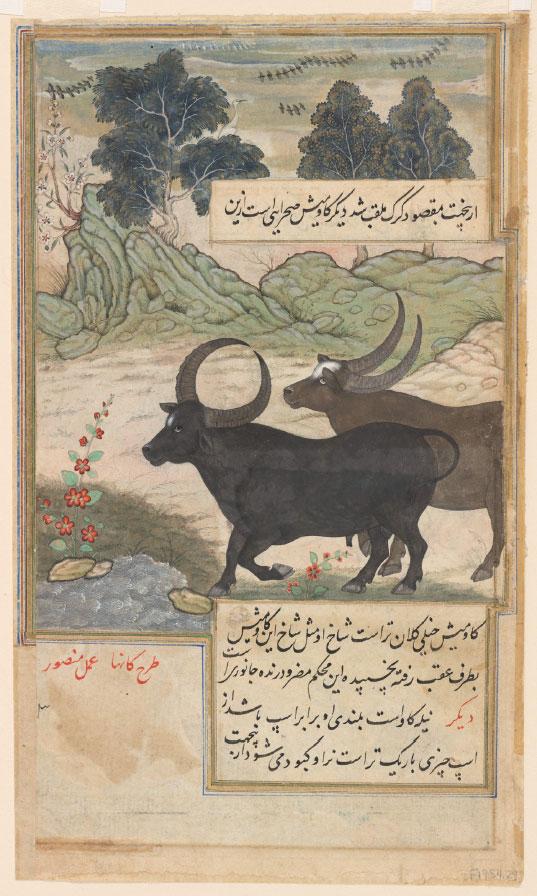 ازنجهت بمقصود کرک ملقب شد دیکر کاومیش صحرایی است ازین
کاومیش خیلی کلان تر است شاخ او مثل شاخ این کاومیش
بطرف عقب رفته بچسپیده این محکم مضر و درنده جانوریست
دیکر نیله کاو است بلندی او برابر اسپ باشد از
اسپ چیزی باریک تر است نر او کبود می شود ازینجهت
طرح کانها عمل منصور
F1954.29